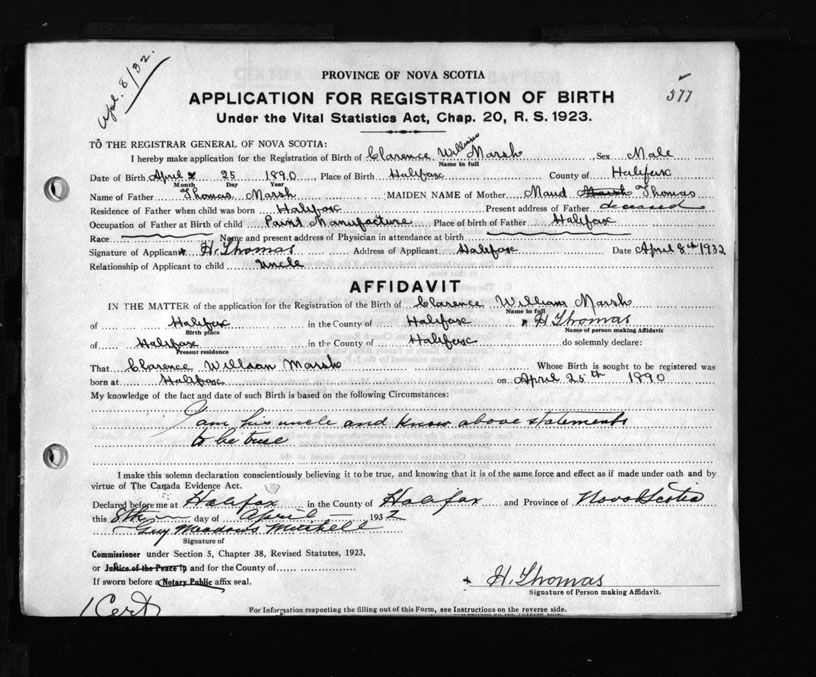 Apl. 8/32.
PROVINCE OF NOVA SCOTIA
577
APPLICATION FOR REGISTRATION OF BIRTH
Under the Vital Statistics Act, Chap. 20, R. S. 1923.
TO THE REGISTRAR GENERAL OF NOVA SCOTIA:
I hereby make application for the Registration of Birth of Clarence William Marsh Sex Male
Name in full
Date of Birth April 25 1890 Place of Birth Halifax County of Halifax
Month Day Year
Name of Father Thomas Marsh MAIDEN NAME of Mother Maud Marsh Thomas
Residence of Father when child was born Halifax Present address of Father deceased
Occupation of Father at Birth of child Paint Manufacture Place of birth of Father Halifax
Race Name and present address of Physician in attendance at birth
Signature of Applicant H. Thomas Address of Applicant Halifax Date April 8th 1932
Relationship of Applicant to child Uncle
AFFIDAVIT
IN THE MATTER of the application for the Registration of the Birth of Clarence William Marsh
Name in full
of Halifax in the County of Halifax H. Thomas
Birth place Name of person making Affidavit
of Halifax in the County of Halifax do solemnly declare:
Present residence
That Clarence William Marsh Whose Birth is sought to be registered was
born at Halifax on April 25th 1890
My knowledge of the fact and date of such Birth is based on the following Circumstances:
I am his uncle and know above statements
to be true
I make this solemn declaration conscientiously believing it to be true, and knowing that it is of the same force and effect as if made under oath and by
virtue of The Canada Evidence Act.
Declared before me at Halifax in the County of Halifax and Province of Nova Scotia
this 8th day of April 1932
Guy Meadows Mitchell
Signature of
Commissioner under Section 5, Chapter 38, Revised Statutes, 1923,
or Justice of the Peace in and for the County of
If sworn before a Notary Public affix seal.
H. Thomas
Signature of Person making Affidavit.
1 Cert
For Information respecting the filling out of this Form, see Instructions on the reverse side.